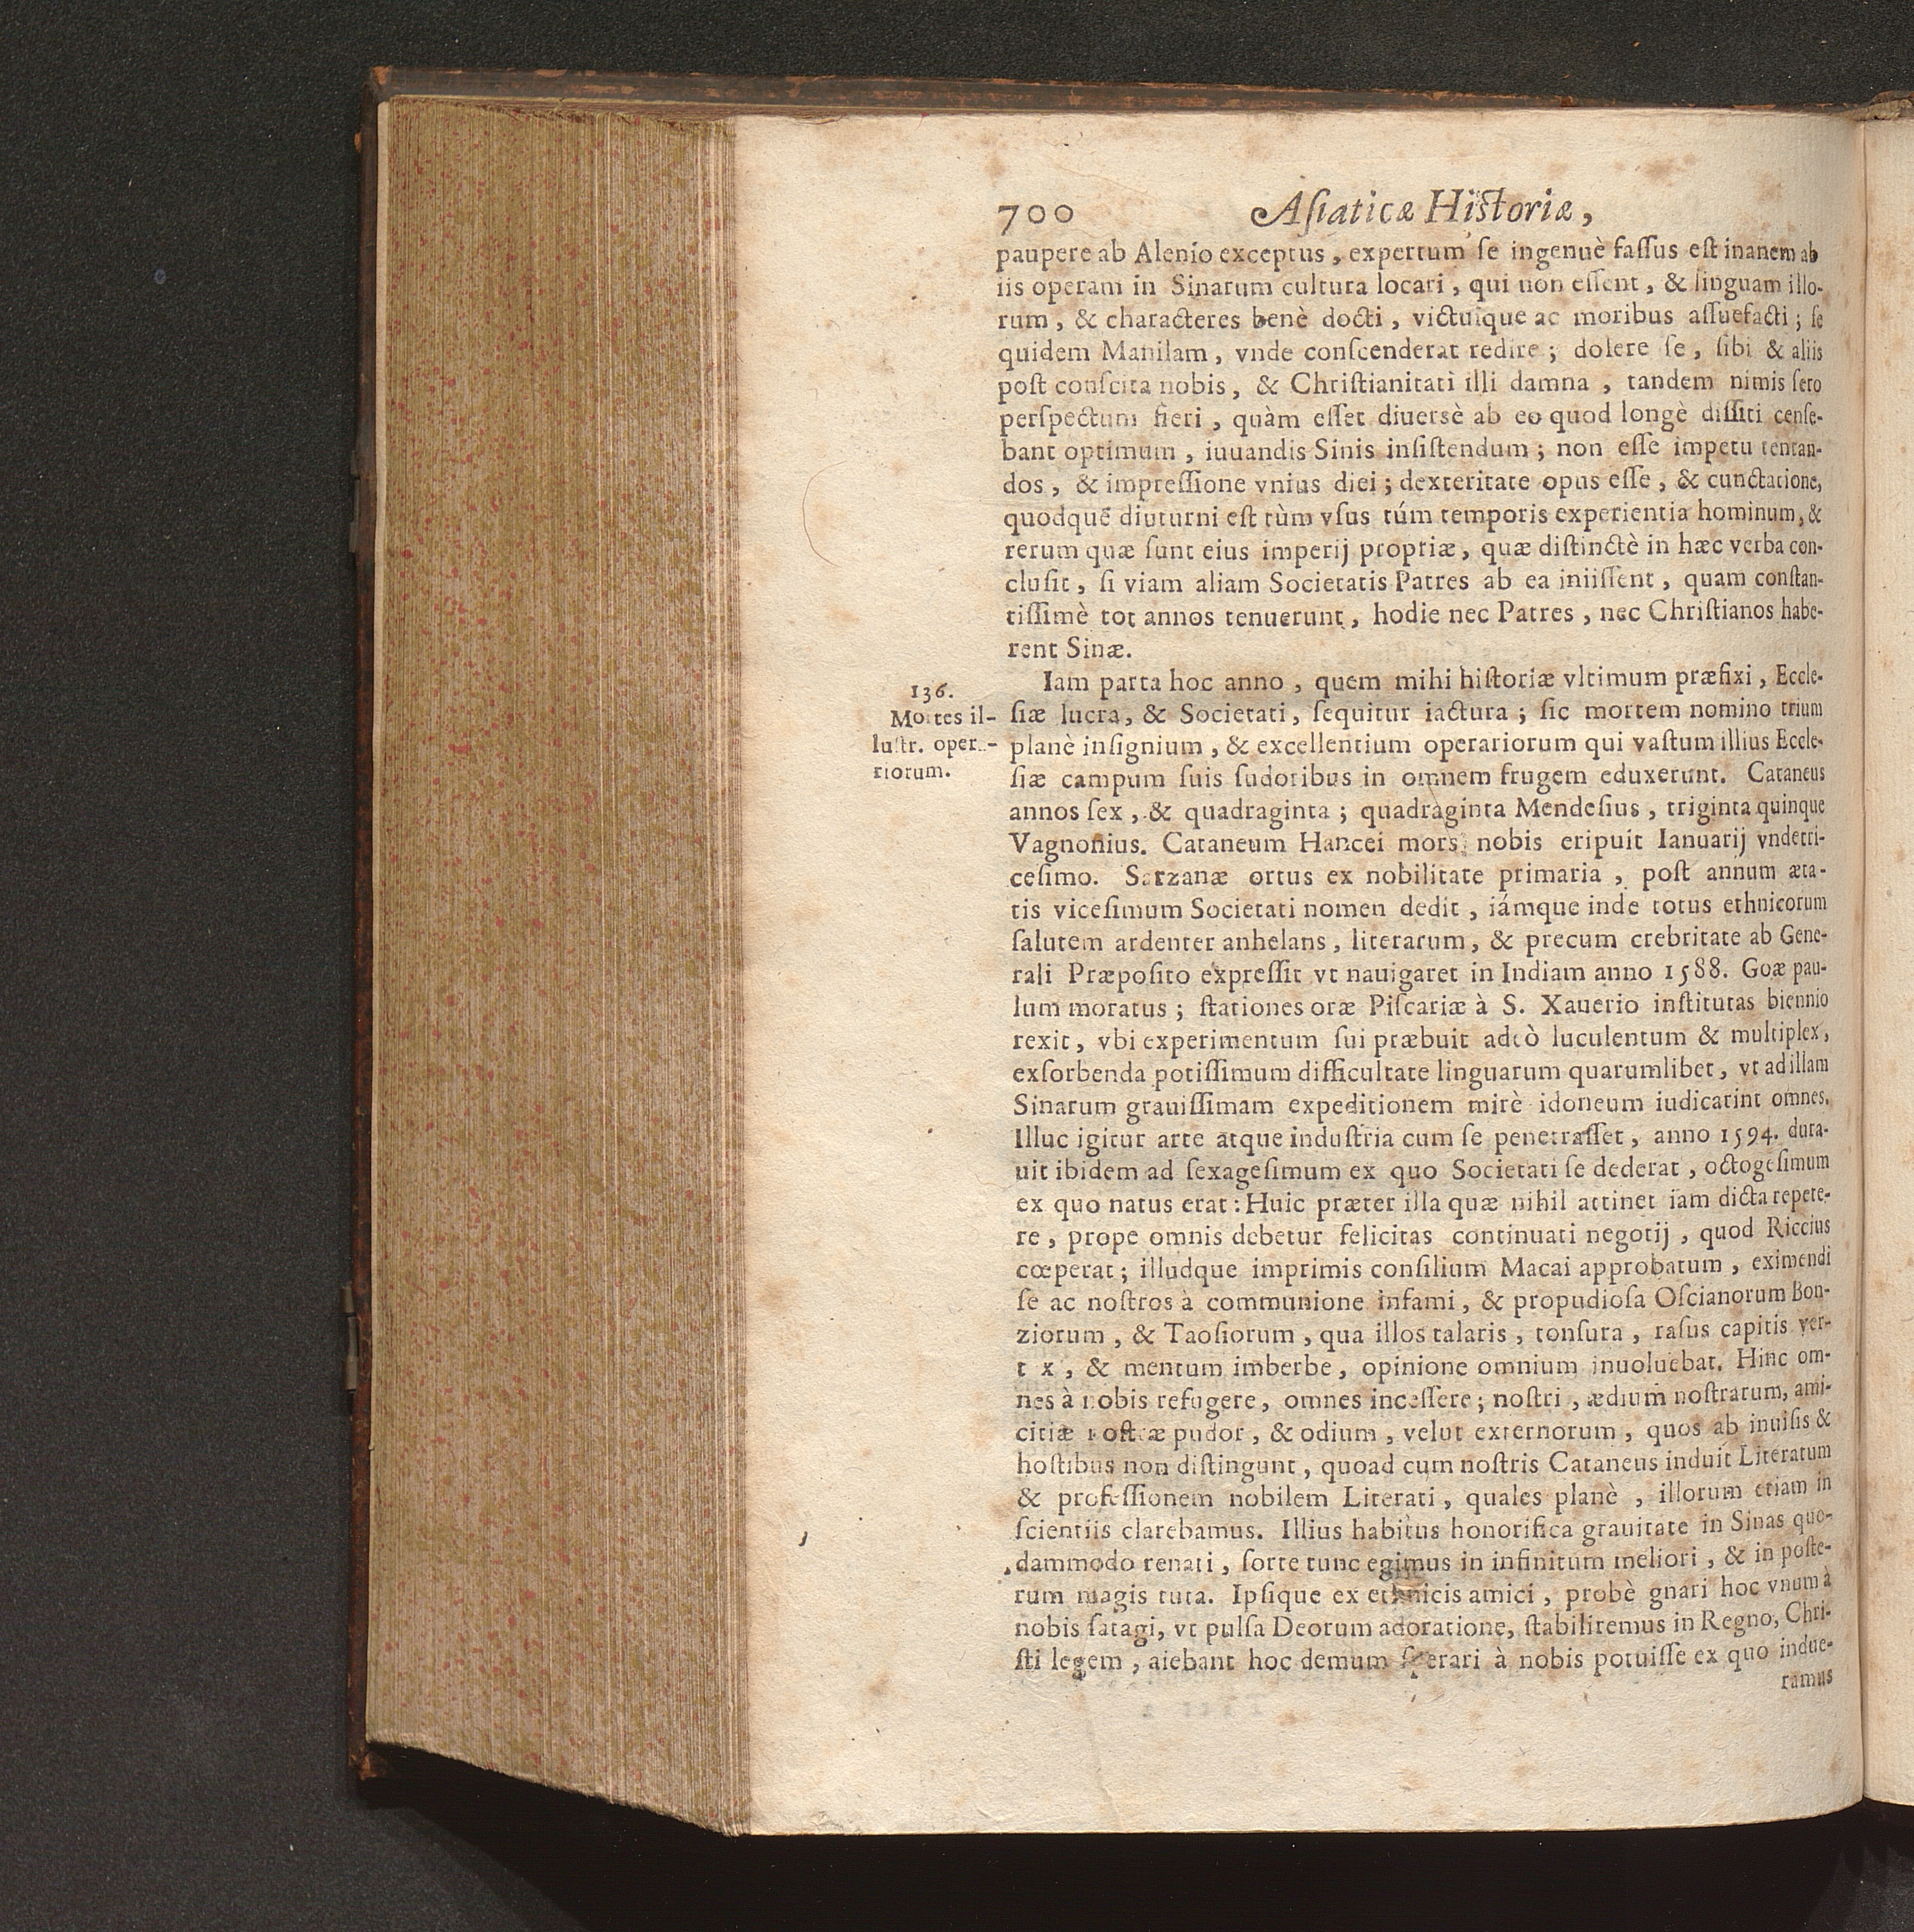 700 Asiaticæ Historiæ,
paupere ab Alenio exceptus, expertum se ingenuè fassus est inanem ab
iis operam in Sinarum cultura locari, qui non essent, & linguam illo-
rum, & characteres benè docti, victuique ac moribus assuefacti; se
quidem Manilam, vnde conscenderat redire; dolere se, sibi & aliis
post conscita nobis, & Christianitati illi damna, tandem nimis sero
perspectum fieri, quàm esset diuersè ab eo quod longè dissiti cense-
bant optimum, iuuandis Sinis insistendum; non esse impetu tentan-
dos, & impressione vnius diei; dexteritate opus esse, & cunctatione,
quodque diuturni est tùm vsus túm temporis experientia hominum, &
rerum quæ sunt eius imperij propriæ, quæ distinctè in hæc verba con-
clusit, si viam aliam Societatis Patres ab ea iniissent, quam constan-
tissimè tot annos tenuerunt, hodie nec Patres, nec Christianos habe-
rent Sinæ.
136.
Mortes il-
lustr. opera-
riorum.
Iam parta hoc anno, quem mihi historiæ vltimum præfixi, Eccle-
siæ lucra, & Societati, sequitur iactura; sic mortem nomino trium
planè insignium, & excellentium operariorum qui vastum illius Eccle-
siæ campum suis sudoribus in omnem frugem eduxerunt. Cataneus
annos sex, & quadraginta; quadraginta Mendesius, triginta quinque
Vagnonius. Cataneum Hancei mors nobis eripuit Ianuarij vndetri-
cesimo. Sarzanæ ortus ex nobilitate primaria, post annum æta-
tis vicesimum Societati nomen dedit, iámque inde totus ethnicorum
salutem ardenter anhelans, literarum, & precum crebritate ab Gene-
rali Præposito expressit vt nauigaret in Indiam anno 1588. Goæ pau-
lum moratus; stationes oræ Piscariæ à S. Xauerio institutas biennio
rexit, vbi experimentum sui præbuit adeò luculentum & multiplex,
exsorbenda potissimum difficultate linguarum quarumlibet, vt ad illam
Sinarum grauissimam expeditionem mirè idoneum iudicarint omnes.
Illuc igitur arte atque industria cum se penetrasset, anno 1594. dura-
uit ibidem ad sexagesimum ex quo Societati se dederat, octogesimum
ex quo natus erat: Huic præter illa quæ nihil attinet iam dicta repete-
re, prope omnis debetur felicitas continuati negotij, quod Riccius
cœperat; illudque imprimis consilium Macai approbatum, eximendi
se ac nostros à communione infami, & propudiosa Oscianorum Bon-
ziorum, & Taosiorum, qua illos talaris, tonsura, rasus capitis ver-
t x, & mentum imberbe, opinione omnium inuoluebat. Hinc om-
nes à nobis refugere, omnes incessere; nostri, ædium nostrarum, ami-
citiæ nostræ pudor, & odium, velut externorum, quos ab inuisis &
hostibus non distingunt, quoad cum nostris Cataneus induit Literatum
& professionem nobilem Literati, quales planè, illorum etiam in
scientiis clarebamus. Illius habitus honorifica grauitate in Sinas quo-
dammodo renati, sorte tunc egimus in infinitum meliori, & in poste-
rum magis tuta. Ipsique ex ethnicis amici, probè gnari hoc vnum à
nobis satagi, vt pulsa Deorum adoratione, stabiliremus in Regno, Chri-
sti legem, aiebant hoc demum sperari à nobis potuisse ex quo indue-
ramus